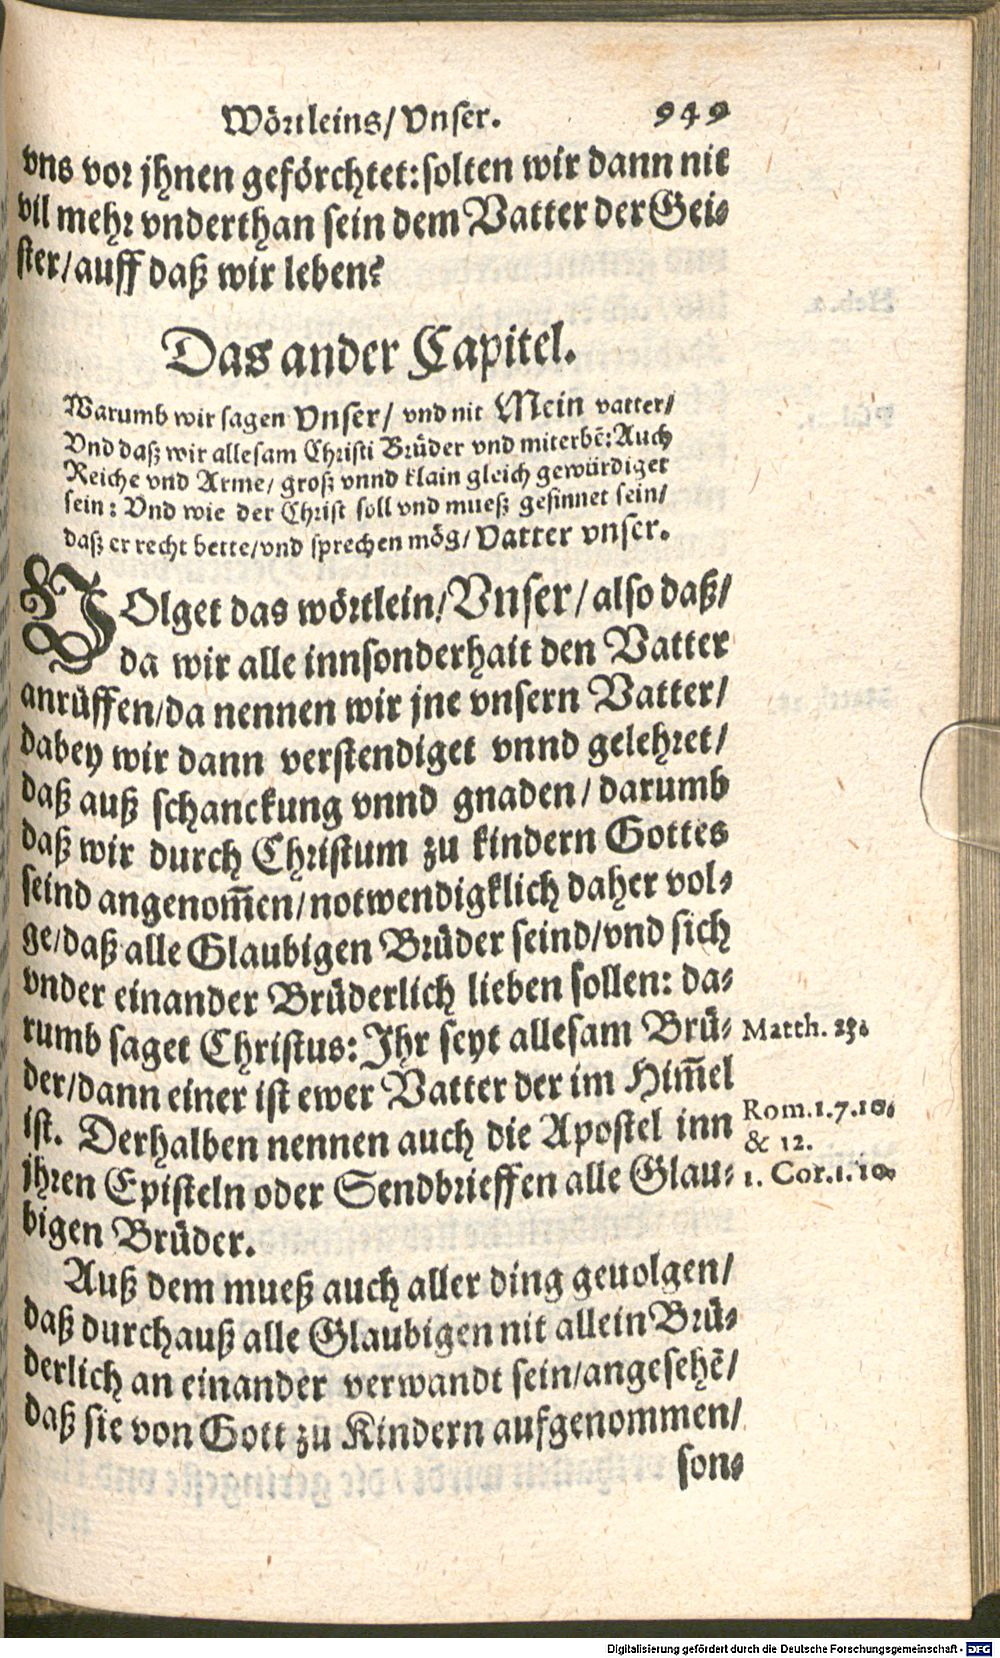 Wörtleins/ Vnser. 949
vns vor jhnen geförchtet: solten wir dann nit
vil mehr vnderthan sein dem Vatter der Gei⸗
ster/ auff daß wir leben?
Das ander Capitel.
Warumb wir sagen Vnser/ vnd nit Mein vatter/
Vnd daß wir allesam Christi Brüder vnd miterbē: Auch
Reiche vnd Arme/ groß vnnd klain gleich gewürdiget
sein: Vnd wie der Christ soll vnd mueß gesinnet sein/
daß er recht bette/ vnd sprechen mög/ Vatter vnser.
VOlget das wörtlein/ Vnser/ also daß/
da wir alle innsonderhait den Vatter
anrüffen/ da nennen wir jne vnsern Vatter/
dabey wir dann verstendiget vnnd gelehret/
daß auß schanckung vnnd gnaden/ darumb
daß wir durch Christum zu kindern Gottes
seind angenom̃en/ notwendigklich daher vol⸗
ge/ daß alle Glaubigen Brüder seind/ vnd sich
vnder einander Brüderlich lieben sollen: da⸗
rumb saget Christus: Ihr seyt allesam Brü⸗
der/ dann einer ist ewer Vatter der im Him̃el
ist. Derhalben nennen auch die Apostel inn
jhren Episteln oder Sendbrieffen alle Glau⸗
bigen Brüder.
Matth. 23.
Rom. 1. 7. 10.
& 12.
1. Cor. 1. 10.
Auß dem mueß auch aller ding geuolgen/
daß durchauß alle Glaubigen nit allein Brü⸗
derlich an einander verwandt sein/ angesehē/
daß sie von Gott zu Kindern aufgenommen/
son⸗
Digitalisierung gefördert durch die Deutsche Forschungsgemeinschaft - DFG